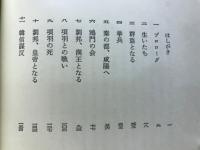 はしがき
一 プロローグ
二 生いたち
三 群盗となる
四 挙兵
五 秦の都、咸陽へ
六 鴻門の会
七 劉邦、漢王となる
八 項羽との戦い
九 項羽の死
十 劉邦、皇帝となる
十一 韓信謀反